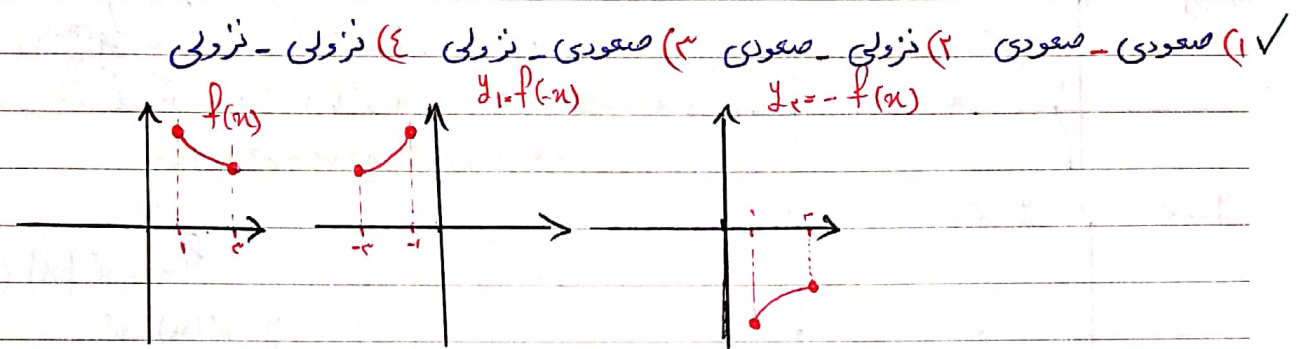 ✓ ۱) صعودی - صعودی ۲) نزولی - صعودی ۳) صعودی - نزولی ٤) نزولی - نزولی
f(x) y₁=f(-x) y₂=-f(x)
۱ ۳ -۳ -۱ ۱ ۳